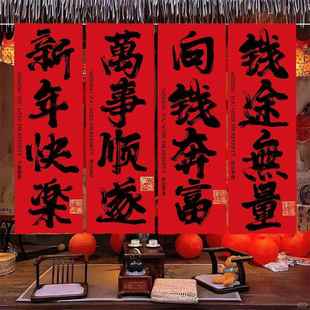 新年快樂
萬事顺遂
向钱奔富
钱途無量